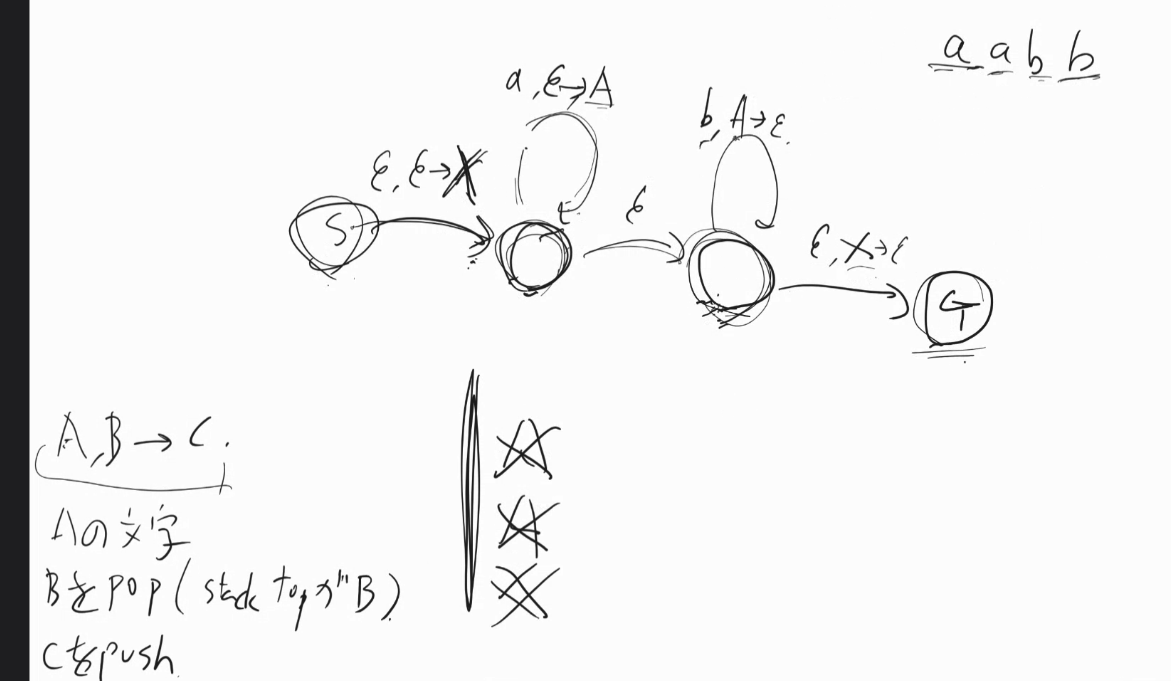 a a b b
a, ε→A
b, A→ε
ε, ε→X
ε
S
ε, X→ε
G
A, B → C.
Aの文字
BをPOP (stack topがB)
Cをpush
A
A
X